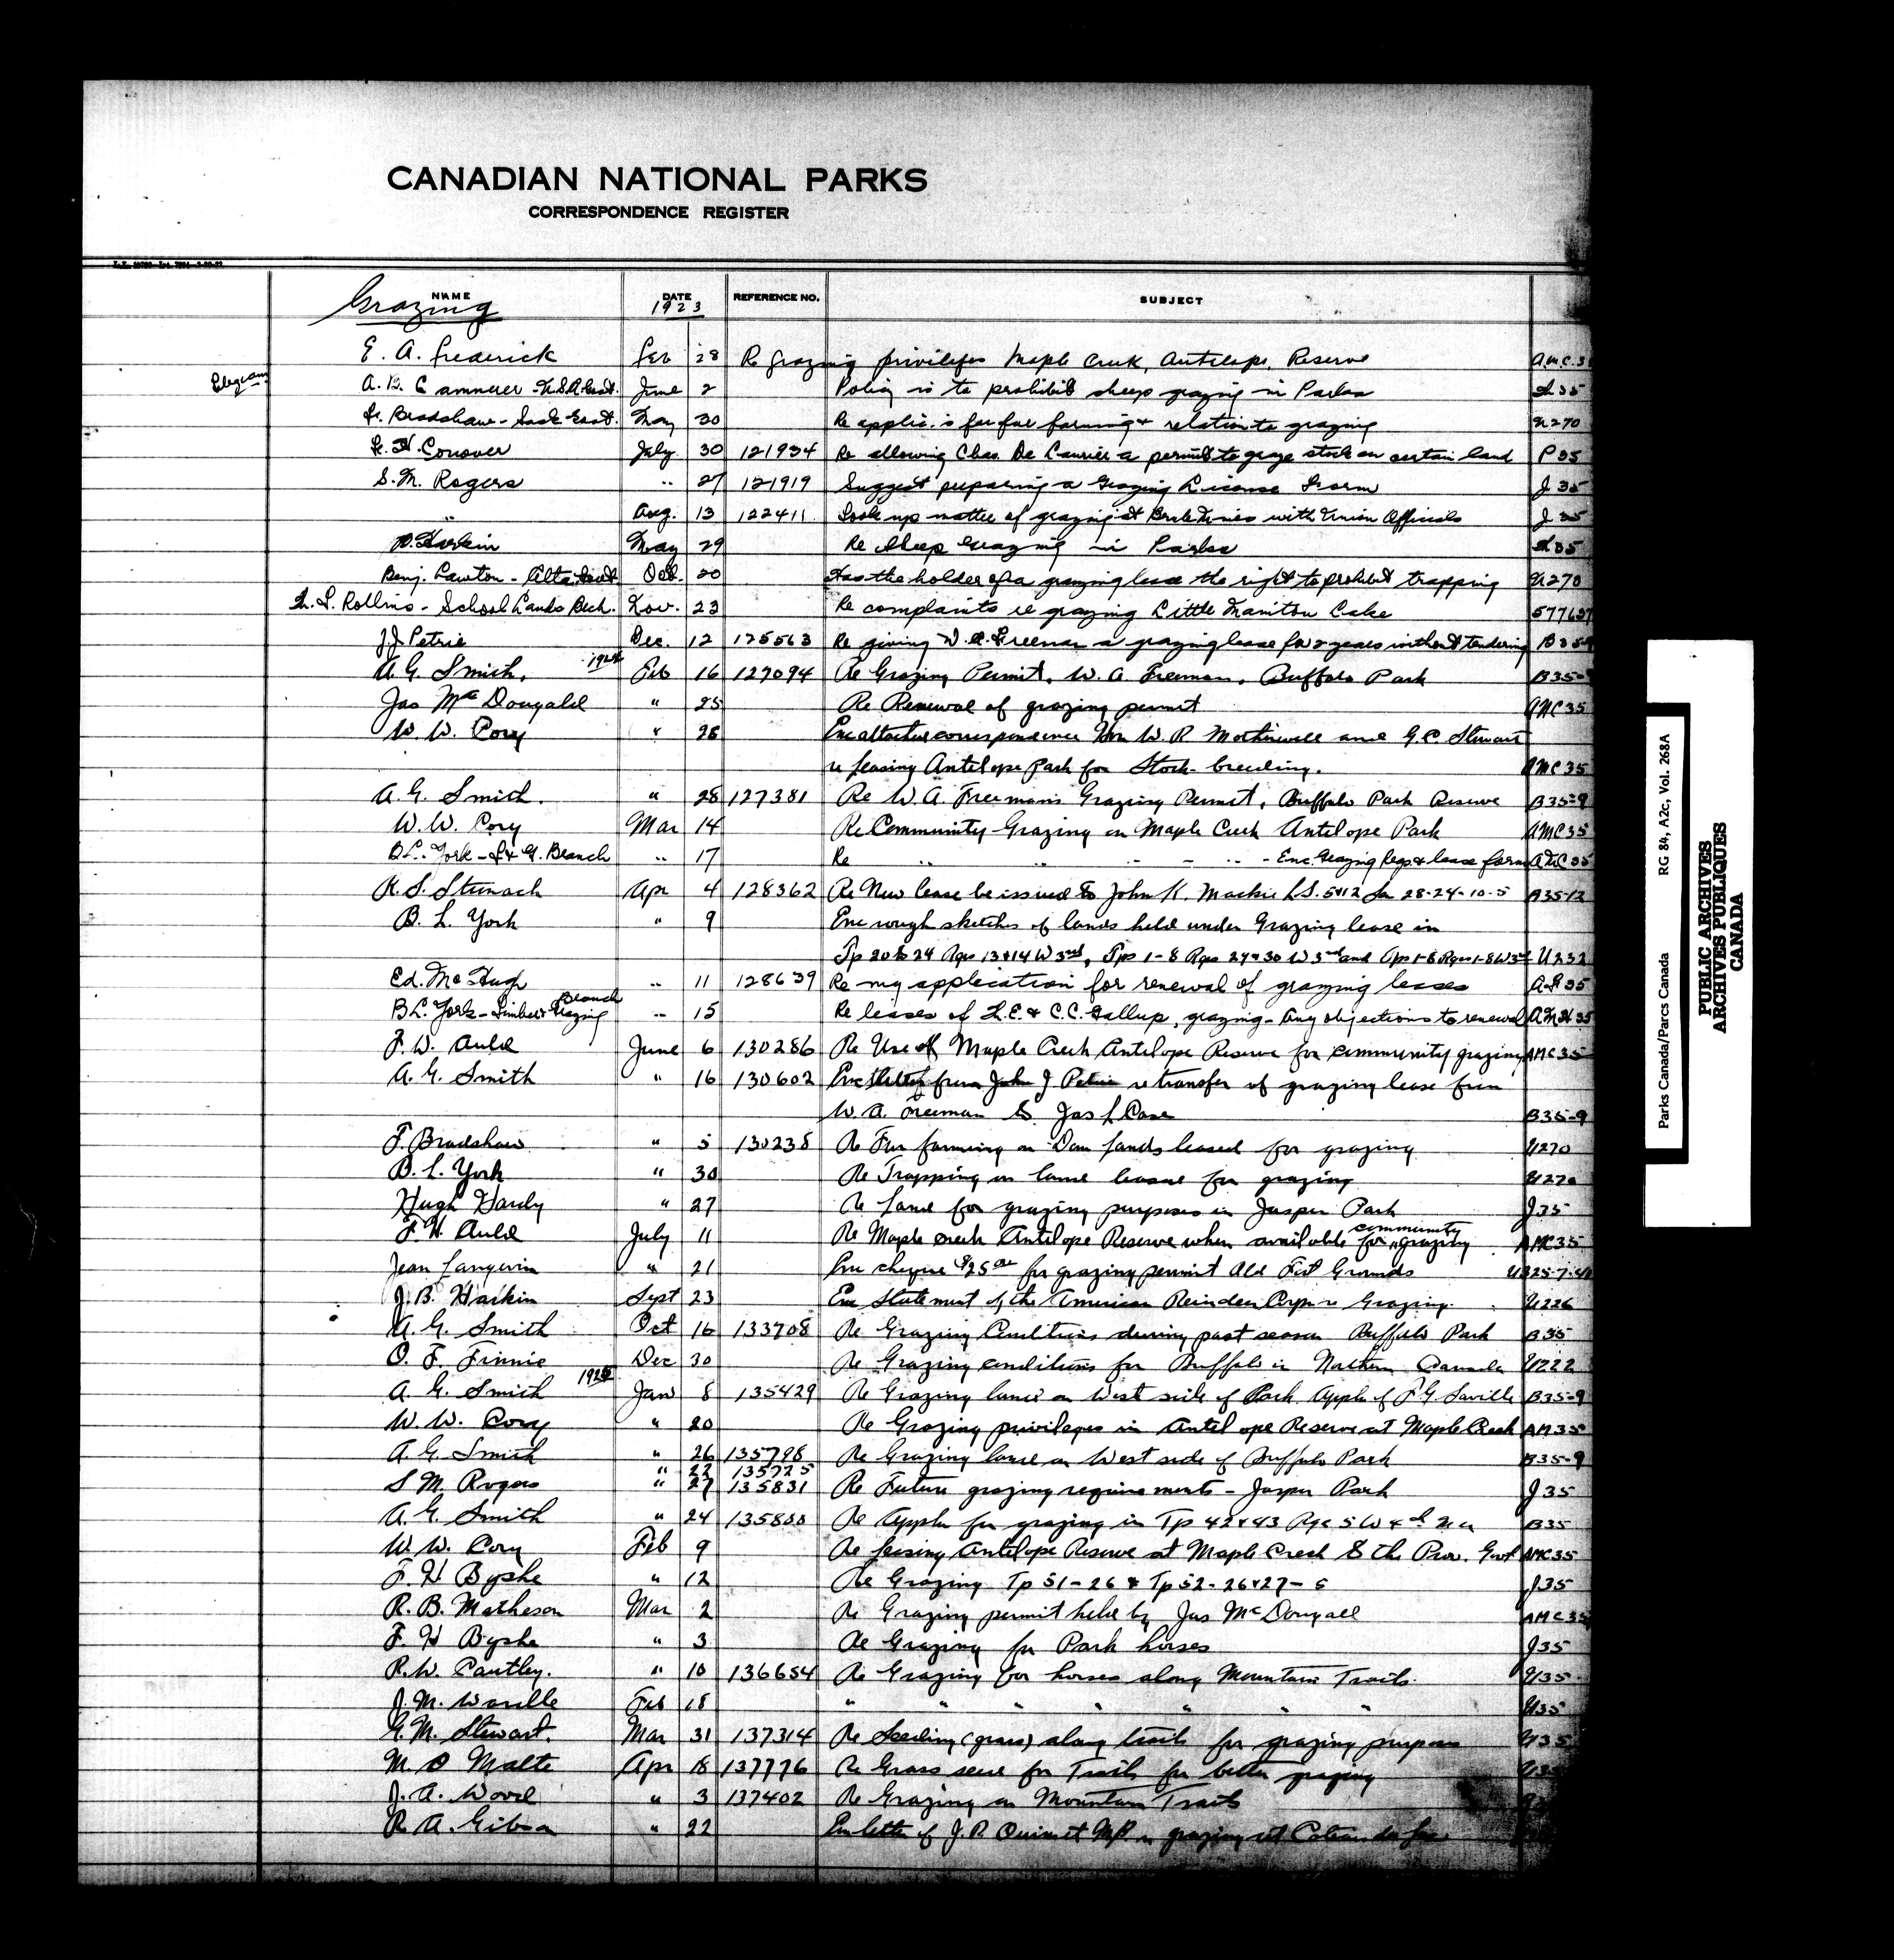 CANADIAN NATIONAL PARKS
CORRESPONDENCE REGISTER
NAME DATE REFERENCE NO. SUBJECT
Grazing 1923
E. A. Frederick Feb 28 Re grazing privileges Maple Creek, Antelope, Reserve
A. B. Cammerer June 2 Policy is to prohibit sheep grazing in Parks
F. Bradshaw - Sask Govt. May 30 Re applic. s for fur farming & relation to grazing U270
Conover July 30 121934 Re allowing Chas. De Laurier a permit to graze stock on certain land P35
S. M. Rogers " 27 121919 Suggest preparing a Grazing License Form J 35
" Aug. 13 122411 Look up matter of grazing at with Union Officials J 35
Harkin May 29 Re Sheep Grazing in Parks
Benj. Lawton - Alta Govt Oct. 20 Has the holder of a grazing lease the right to prohibit trapping U270
Rollins - School Lands Bch. Nov. 23 Re complaints re grazing Little Manitou Lake 577637
J J Petrie Dec. 12 125563 Re giving W. A. Freeman a grazing lease for 2 years without tendering B35-9
A. G. Smith. 1924 Feb 16 127094 Re Grazing Permit, W. A. Freeman, Buffalo Park B35-9
Jas McDougald " 25 Re Renewal of grazing permit AMC35
W. W. Cory " 26 Enc attached correspondence Hon W. R Motherwell and G. C. Stewart
re leasing Antelope Park for Stock-breeding. AMC35
A. G. Smith. " 28 127381 Re W. A. Freeman's Grazing Permit, Buffalo Park Reserve B35-9
W. W. Cory Mar 14 Re Community Grazing in Maple Creek Antelope Park AMC35
B L. York - T & G. Branch " 17 Re " " - - " - Enc. Grazing Regs & lease form AMC35
R. S. Stronach Apr 4 128362 Re New lease be issued to John K. Mackie L.S. 5&12 Sec 28-24-10-5 B35-12
B. L. York " 9 Enc rough sketches of lands held under Grazing lease in
Tp 20 to 24 Rges 13&14 W 3rd, Tps 1-8 Rges 29&30 W 3rd and Tps 1-8 Rges 1-8 W 3rd U232
Ed. McHugh " 11 128639 Re my application for renewal of grazing leases
B L. York - Timber & Grazing Branch " 15 Re leases of & C. C. Gallup, grazing - Any objections to renewal
F. W. Auld June 6 130286 Re Use of Maple Creek Antelope Reserve for community grazing AMC35
A. G. Smith " 16 130602 Enc letter from John J Petrie re transfer of grazing lease from
W. A. Freeman to Jas L Case B35-9
F. Bradshaw " 5 130238 Re Fur farming on Dom lands leased for grazing U270
B. L. York " 30 Re Trapping on land leased for grazing U270
Hugh Hardy " 27 Re Land for grazing purposes in Jasper Park J35
F. H. Auld July 11 Re Maple creek Antelope Reserve when available for community grazing AMC35
Jean Langevin " 21 Enc cheque $25 00 for grazing permit Old Fort Grounds
J. B. Harkin Sept 23 Enc Statement of the American Reindeer Corp re Grazing. U226
A. G. Smith Oct 16 133708 Re Grazing Conditions during past season Buffalo Park B35
O. F. Finnie Dec 30 Re Grazing conditions for Buffalo in Northern Canada U222
A. G. Smith 1925 Jan 8 135429 Re Grazing land on West side of Park Appln of F. G. Saville B35-9
W. W. Cory " 20 Re Grazing privileges in Antelope Reserve at Maple Creek AM35
A. G. Smith " 26 135798 Re Grazing land on West side of Buffalo Park B35-9
" 22 135725
S M. Rogers " 27 135831 Re Future grazing requirements - Jasper Park J35
A. G. Smith " 24 135800 Re Appln for grazing in Tp 42&43 Rge 5 W 4th B35
W. W. Cory Feb 9 Re leasing Antelope Reserve at Maple Creek to the Prov. Govt AMC35
F. H Byshe " 12 Re Grazing Tp 51-26 & Tp 52-26&27-5 J35
R. B. Matheson Mar 2 Re Grazing permit held by Jas McDougall AMC35
F. H Byshe " 3 Re Grazing for Park horses J35
R. W. Cautley. " 10 136654 Re Grazing for horses along Mountain Trails. U35
J. M. Wardle Feb 18 " " " " " " " U35
G. M. Stewart. Mar 31 137314 Re Seeding (grass) along trails for grazing purposes U35
M. O Malte Apr 18 137776 Re Grass seed for Trails for better grazing U35
J. A. Wood " 3 137402 Re Grazing on Mountain Trails
R A. Gibson " 22 Enc letter of J. P. Ouimet MP re grazing at Coteau du Lac
Parks Canada/Parcs Canada RG 84, A2c, Vol. 268A
PUBLIC ARCHIVES
ARCHIVES PUBLIQUES
CANADA